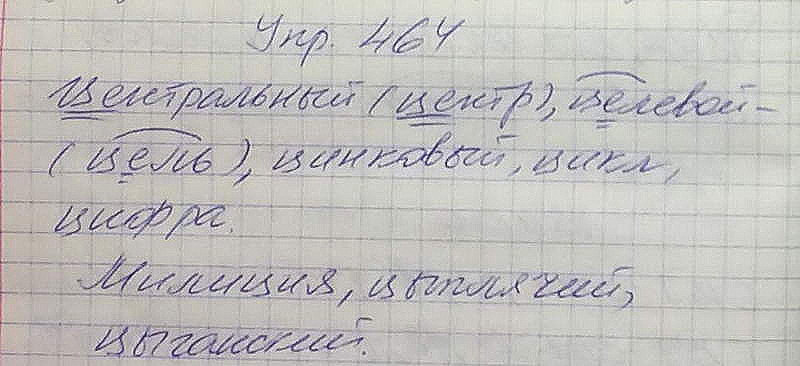 Упр. 464
Центральный (центр), целевой -
(цель), цинковый, цикл,
цифра.
Милиция, цыплячий,
цыганский.